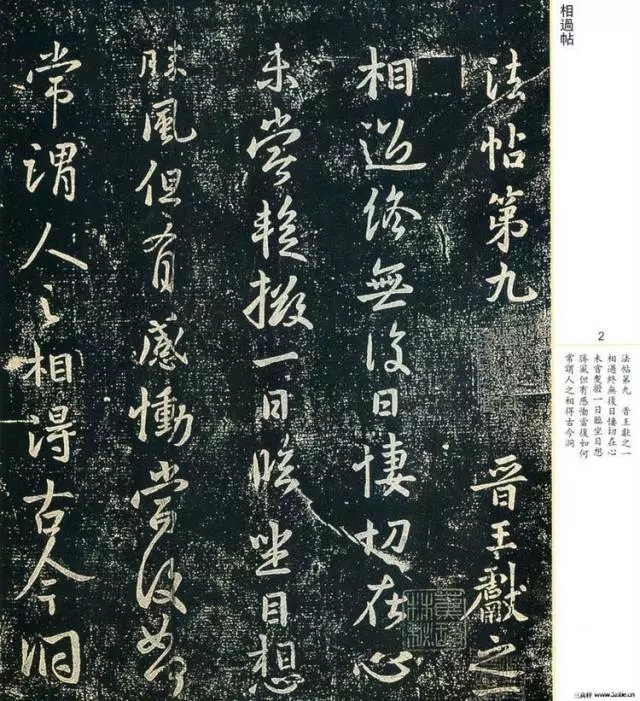 相過帖
2
法帖第九 晋王獻之一
相過終無復日悽切在心
未嘗蹔撥一日臨坐目想
勝風但有感慟當復如何
常謂人之相得古今洞
法帖第九 晋王獻之一
相過終無復日悽切在心
未嘗蹔撥一日臨坐目想
勝風但有感慟當復如何
常謂人之相得古今洞
www.3zitie.cn